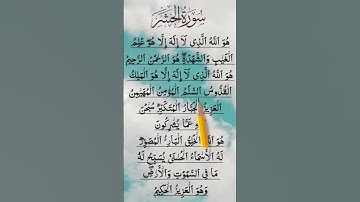 سُورَةُ الْحَشْرِ
هُوَ اللّٰهُ الَّذِي لَا إِلٰهَ إِلَّا هُوَ عٰلِمُ
الْغَيْبِ وَالشَّهٰدَةِ هُوَ الرَّحْمٰنُ الرَّحِيمُ
هُوَ اللّٰهُ الَّذِي لَا إِلٰهَ إِلَّا هُوَ الْمَلِكُ
الْقُدُّوسُ السَّلٰمُ الْمُؤْمِنُ الْمُهَيْمِنُ
الْعَزِيزُ الْجَبَّارُ الْمُتَكَبِّرُ سُبْحٰنَ
عَمَّا يُشْرِكُونَ
هُوَ الْخٰلِقُ الْبَارِئُ الْمُصَوِّرُ
لَهُ الْأَسْمَاءُ الْحُسْنٰى يُسَبِّحُ لَهُ
مَا فِي السَّمٰوٰتِ وَالْأَرْضِ
وَهُوَ الْعَزِيزُ الْحَكِيمُ